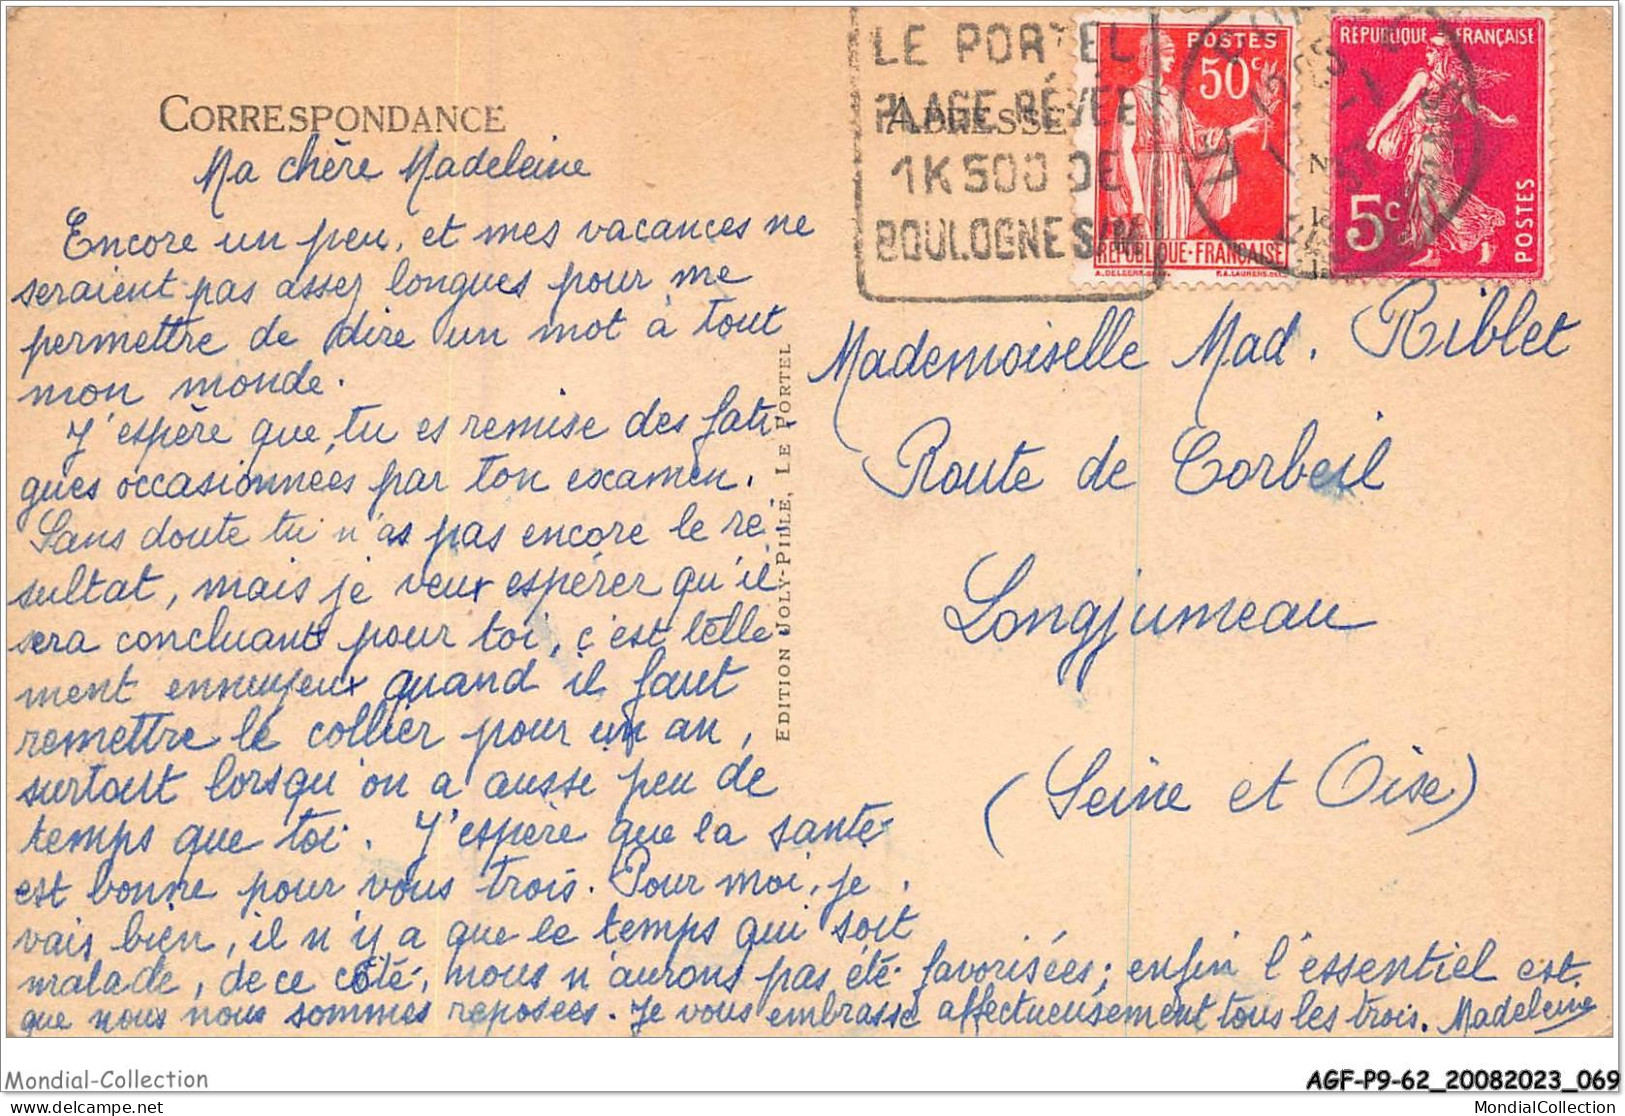 CORRESPONDANCE
Ma chère Madeleine
Encore un peu, et mes vacances ne
seraient pas assez longues pour me
permettre de dire un mot à tout
mon monde.
J'espère que tu es remise des fati-
gues occasionnées par ton examen.
Sans doute tu n'as pas encore le ré-
sultat, mais je veux espérer qu'il
sera concluant pour toi, c'est telle-
ment ennuyeux quand il faut
remettre le collier pour un an,
surtout lorsqu'on a aussi peu de
temps que toi. J'espère que la santé
est bonne pour vous trois. Pour moi, je
vais bien, il n'y a que le temps qui soit
malade, de ce côté, nous n'aurons pas été favorisées; enfin l'essentiel est
que nous nous sommes reposées. Je vous embrasse affectueusement tous les trois. Madeleine
EDITION JOLY-PILLE, LE PORTEL
ADRESSE
LE PORTEL
PLAGE RÊVÉE
1K500 DE
BOULOGNE S/M
POSTES
50c
REPUBLIQUE-FRANÇAISE
REPUBLIQUE FRANÇAISE
5c
POSTES
Mademoiselle Mad. Riblet
Route de Corbeil
Longjumeau
(Seine et Oise)
Mondial-Collection
AGF-P9-62_20082023_069
delcampe.net
MondialCollection